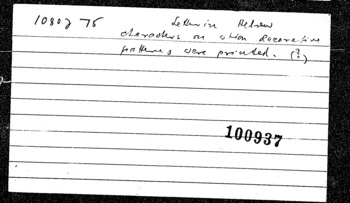 1080 J 75 Letter in Hebrew
characters on which decorative
patterns were printed. (?)
100937